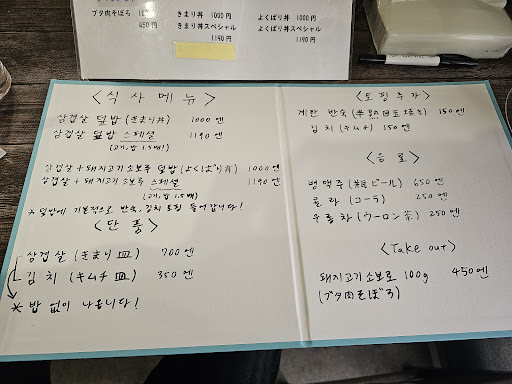 ブタ肉そぼろ
450円
きまり丼 1000円
きまり丼スペシャル
1190円
よくばり丼 1000円
よくばり丼スペシャル
1190円
<식사메뉴>
삼겹살 덮밥 (きまり丼) 1000엔
삼겹살 덮밥 스페셜 1190엔
(고기, 밥 1.5배)
삼겹살 + 돼지고기 소보루 덮밥 (よくばり丼) 1000엔
삼겹살 + 돼지고기 소보루 스페셜 1190엔
(고기, 밥 1.5배)
* 덮밥에 기본적으로 반숙, 김치 토핑 들어갑니다!
<단품>
삼겹살 (きまり皿) 700엔
김치 (キムチ皿) 350엔
* 밥 없이 나옵니다!
<토핑추가>
계란 반숙 (半熟目玉焼き) 150엔
김치 (キムチ) 150엔
<음료>
병맥주 (瓶ビール) 650엔
콜라 (コーラ) 250엔
우롱차 (ウーロン茶) 250엔
<Take out>
돼지고기 소보로 100g 450엔
(ブタ肉そぼろ)